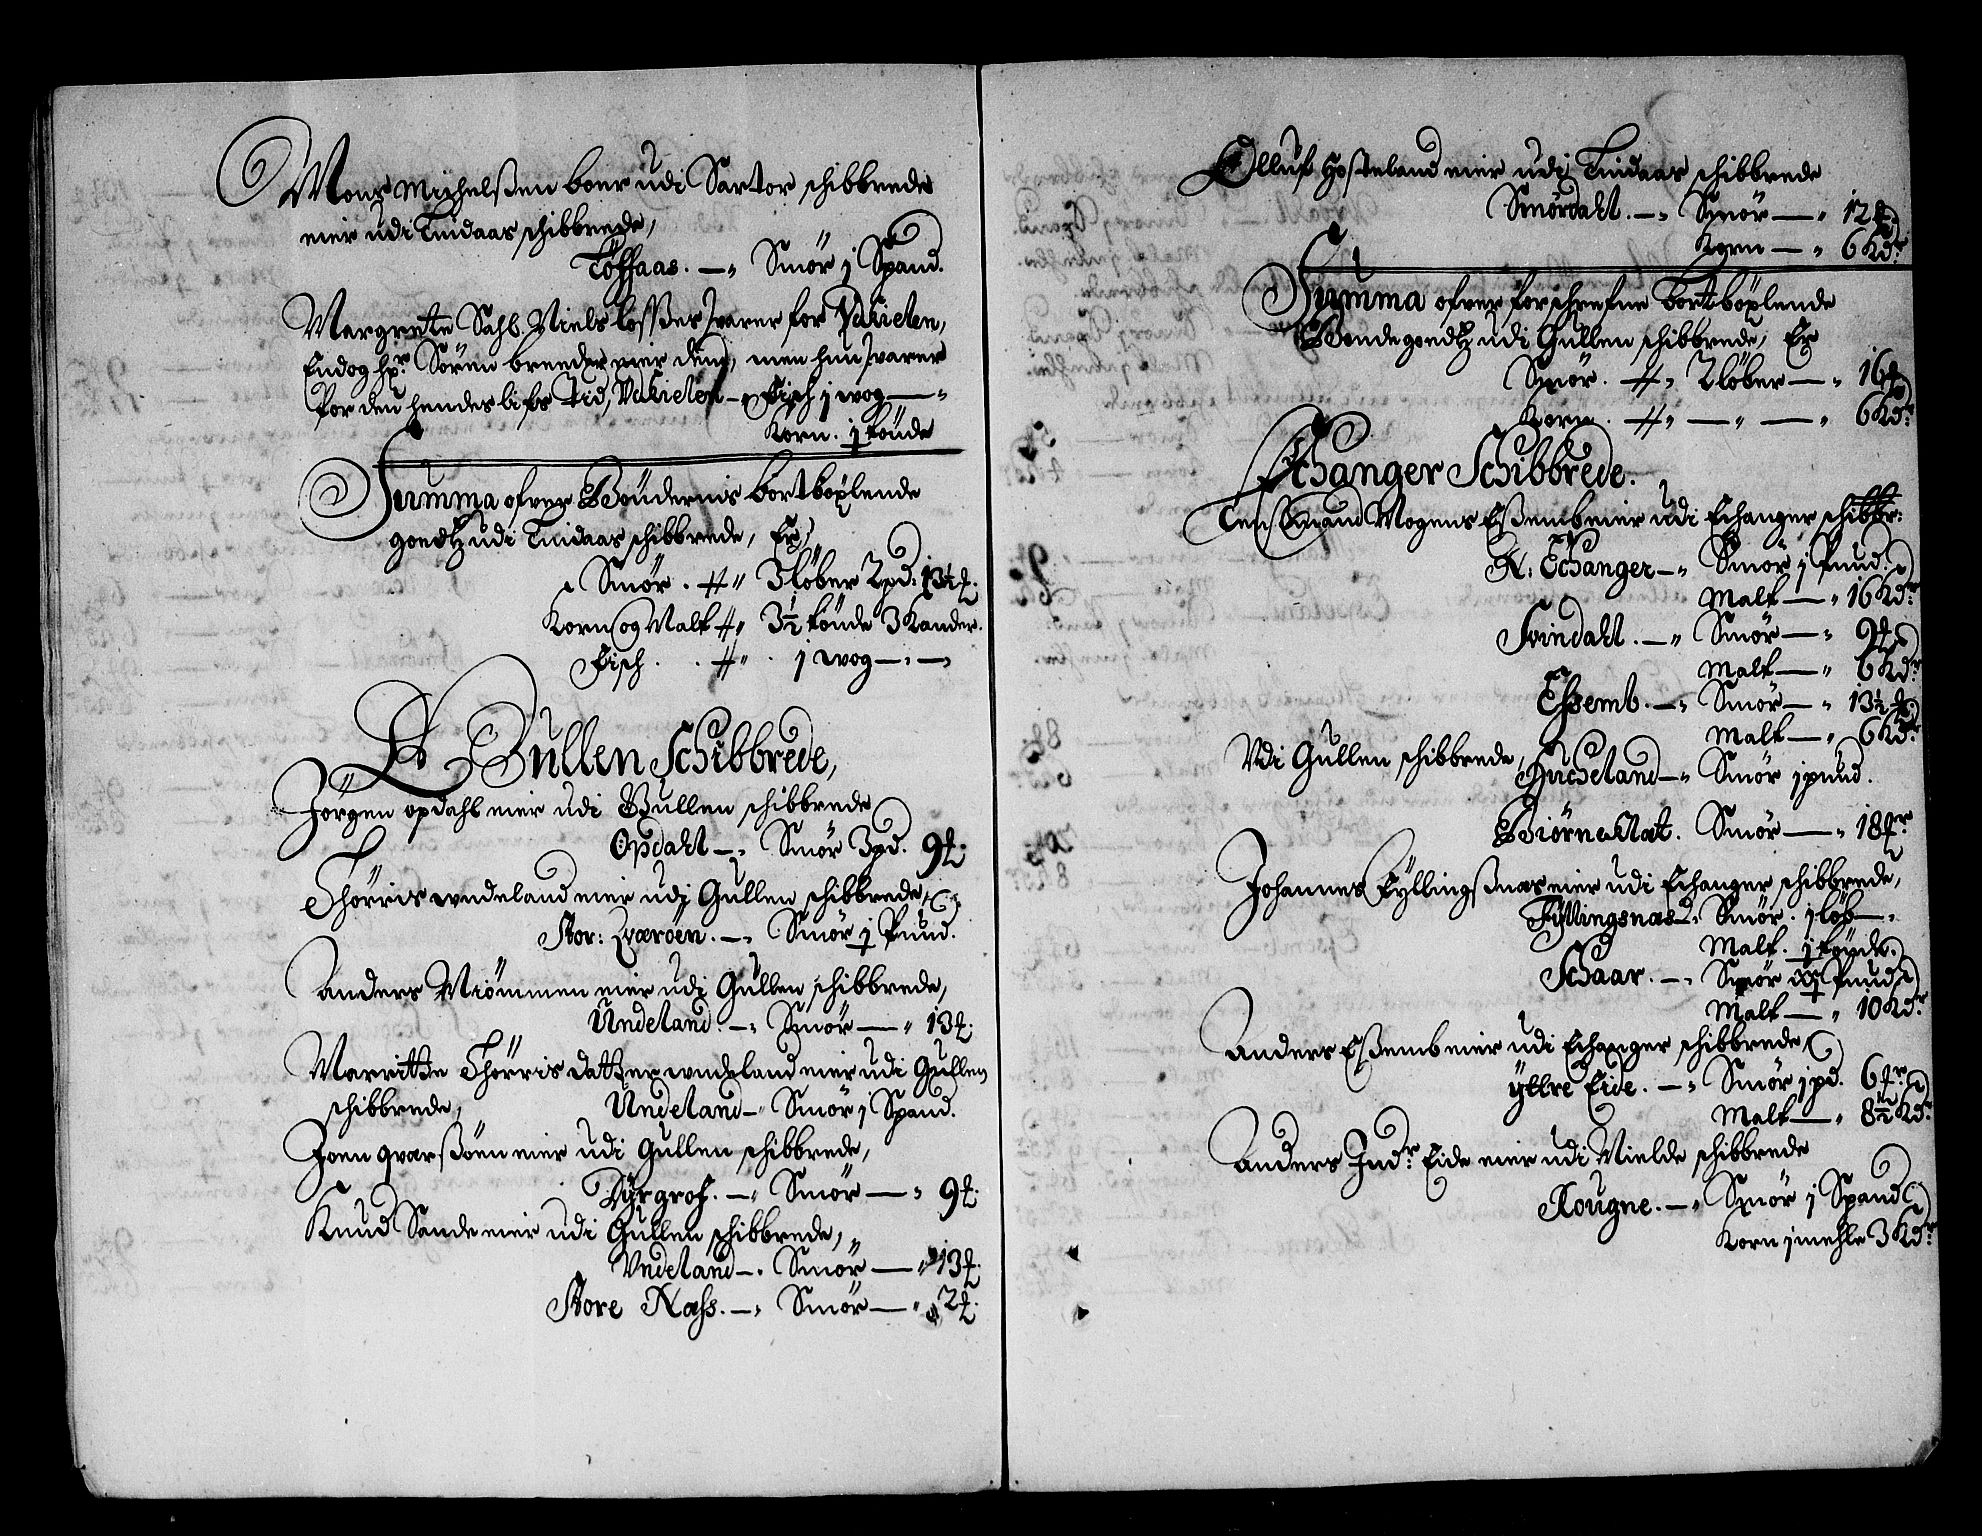 Mons Michelßen boer udi Sartor schibbrede
eier udi Lindaas schibbrede,
Töffaas. — „ Smör j Spand.
Margrete Sahl. Niels Loßes svarer for Vakielen,
Endog hr. Sören bruder eier dend, men hun svarer
for den hendes lifs tid, Vakielen — „ Fisch j wog — „
Korn. j tönde
Summa ofver Böndernis bortböxlende
goedtz udi Lindaas schibbrede, Er,
Smör. # „ 3 löber 2 pd: 13½ ℔.
Korn og Malt # „ 3½ tönde 3 Kander.
Fisch. . # „ . j wog — „ —
Gullen Schibbrede,
Jörgen opdahl eier udi Gullen schibbrede
Opdahl — „ Smör 3 pd. 9 ℔.
Thörris undeland eier udi Gullen schibbrede,
Stor: Qværöen. — „ Smör j Pund.
Anders Miömmen eier udi Gullen schibbrede,
Undeland. — „ Smör — „ 13 ℔.
Marritte Thörris datter undeland eier udi Gullen
schibbrede, Undeland — „ Smör j Spand.
Joen qvarßöen eier udi Gullen schibbrede,
Dyrgrof. — „ Smör — „ 9 ℔.
Knud Sande eier udi Gullen schibbrede, „
Vndeland — „ Smör — „ 13 ℔.
Store Næss. — „ Smör — „ 2 ℔.
Olluf Hosteland eier udi Lindaas schibbrede
Smördahl. — „ Smör — „ 12 ℔.
Korn — „ 6 Kdr.
Summa ofver forschrefne bortböxlende
Bonde goedtz udi Gullen schibbrede, Er
Smör. # „ 2 löber — „ 16 ℔
Korn. # „ — „ — „ 6 Kdr.
Echanger Schibbrede.
Lensmand Mogens Eßemb eier udi Echanger schibbr:
N: Echanger — „ Smör j Pund.
Malt — „ 16 Kdr.
Svindahl. — „ Smör — „ 9 ℔.
Malt — „ 6 Kdr.
Essemb. — „ Smör — „ 13½ ℔.
Malt — „ 6 Kdr.
Vdi Gullen schibbrede, Hucheland — „ Smör j pund.
Biörneklat. Smör — „ 18 ℔r
Johannes Fyllingßnæs eier udi Echanger schibbrede,
Fyllingsnæs — „ Smör. j löb — „
Malt. j tönde.
Schaar. — „ Smör Pund
Malt — „ 10 Kdr.
Anders Eßemb eier udi Echanger schibbrede,
Yttre Eide. — „ Smör j pd. 6 ℔r
Malt — „ 8½ Kdr.
Anders Indr. Eide eier udi Mielde schibbrede
Rougne. — „ Smör j Spand
Korn j mehle 3 Kdr.